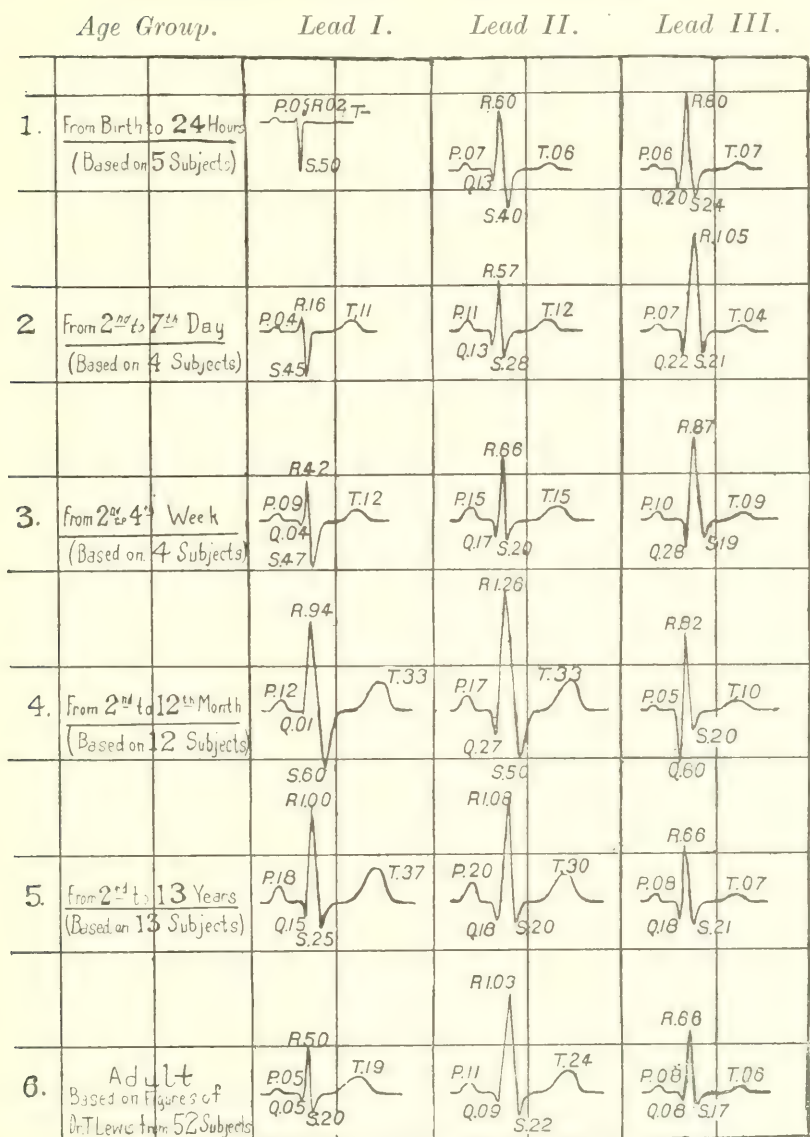 Age Group. Lead I. Lead II. Lead III.
1. From Birth to 24 Hours
(Based on 5 Subjects)
P.05 R02 T-
S.50
R.60
P.07 T.06
Q.13
S.40
R.80
P.06 T.07
Q.20 S24
2 From 2nd to 7th Day
(Based on 4 Subjects)
R.16
P.04 T.11
S.45
R.57
P.11 T.12
Q.13 S.28
R.105
P.07 T.04
Q.22 S.21
3. From 2nd to 4th Week
(Based on 4 Subjects)
R.42
P.09 T.12
Q.04
S.47
R.66
P.15 T.15
Q.17 S.20
R.87
P.10 T.09
Q.28 S.19
4. From 2nd to 12th Month
(Based on 12 Subjects)
R.94
P.12 T.33
Q.01
S.60
R1.26
P.17 T.33
Q.27
S.50
R.82
P.05 T.10
S.20
Q.60
5. From 2nd to 13 Years
(Based on 13 Subjects)
R1.00
P.18 T.37
Q.15
S.25
R1.08
P.20 T.30
Q.18 S.20
R.66
P.08 T.07
Q.18 S.21
6. Adult
Based on Figures of
Dr. T Lewis from 52 Subjects
R.50
P.05 T.19
Q.05 S.20
R1.03
P.11 T.24
Q.09 S.22
R.68
P.08 T.06
Q.08 S.17